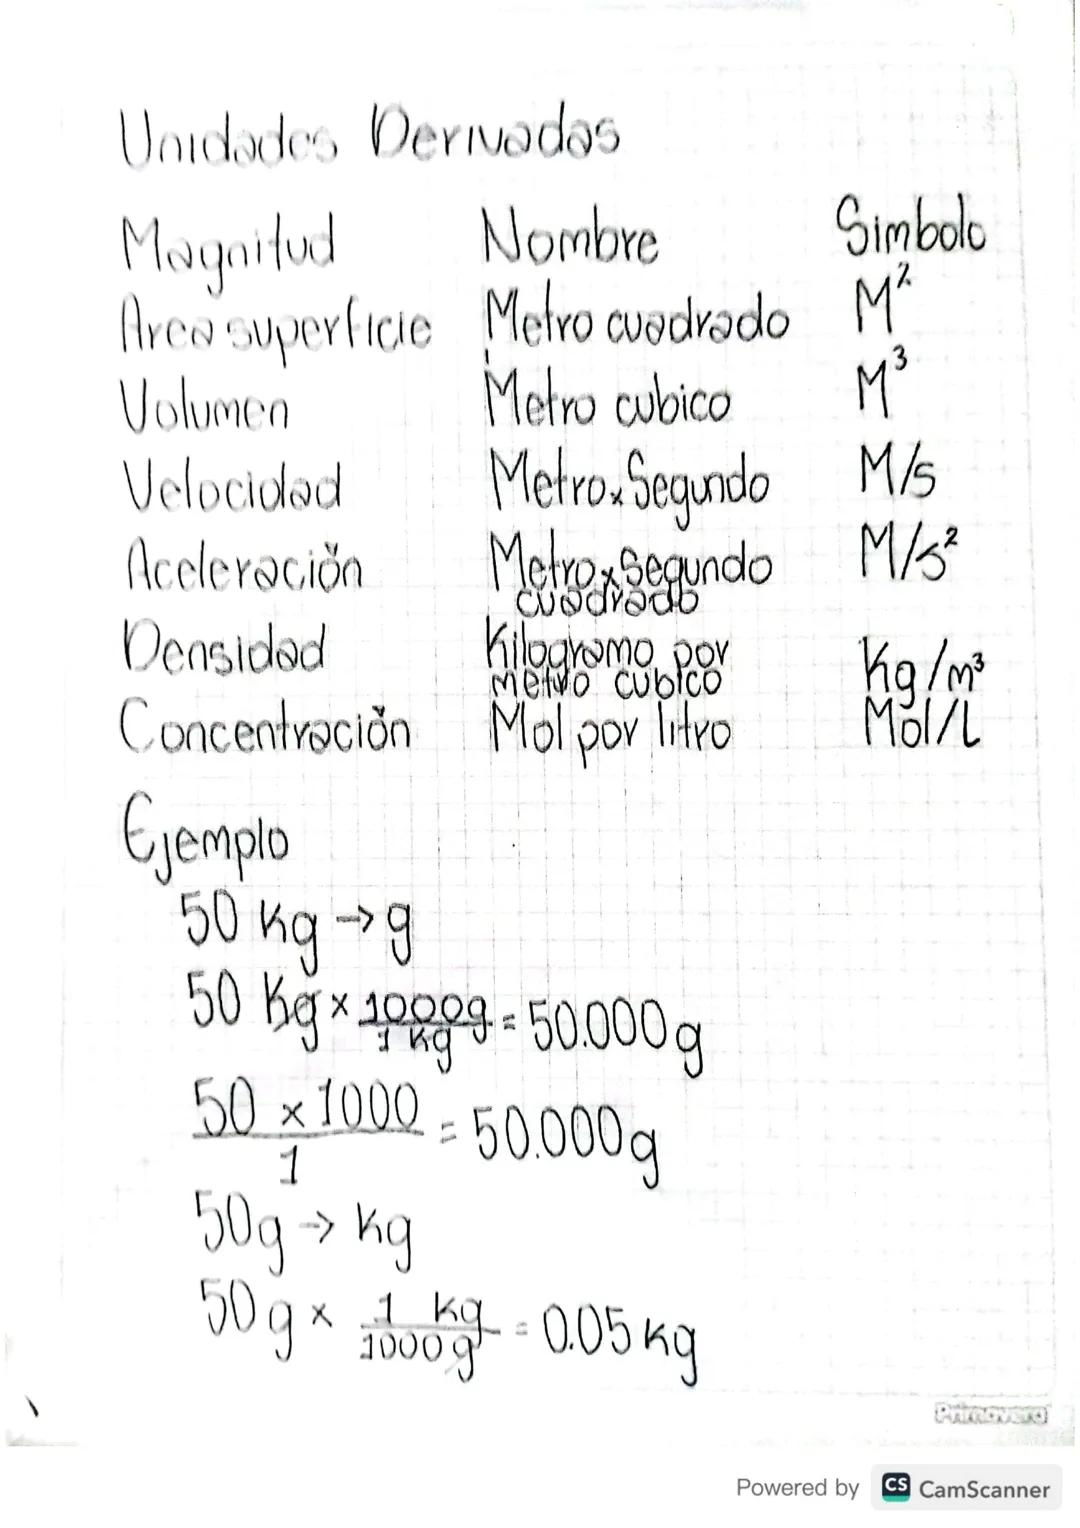 Unidades Derivadas
Magnitud Nombre Simbolo
Area superficie Metro cuadrado M²
Volumen Metro cubico M³
Velocidad Metro x Segundo M/s
Aceleración Metro x Segundo cuadrado M/s²
Densidad Kilogramo por metro cubico Kg/m³
Concentración Mol por litro Mol/L
Ejemplo
50 Kg → g
50 Kg x 1000g / 1 Kg = 50.000 g
50 x 1000 / 1 = 50.000 g
50g → Kg
50 g x 1 Kg / 1000 g = 0.05 Kg
Primavera
Powered by CS CamScanner